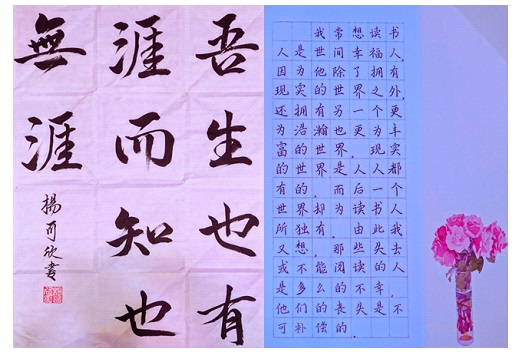 吾生也有
涯而知也
無涯
楊可欣書
我常想读书
人是世间幸福人,
因为他除了拥有
现实的世界之外,
还拥有另一个更
为浩瀚也更为丰
富的世界。现实
的世界是人人都
有的,而后一个
世界却为读书人
所独有。由此我
又想,那些失去
或不能阅读的人
是多么的不幸,
他们的丧失是不
可补偿的。